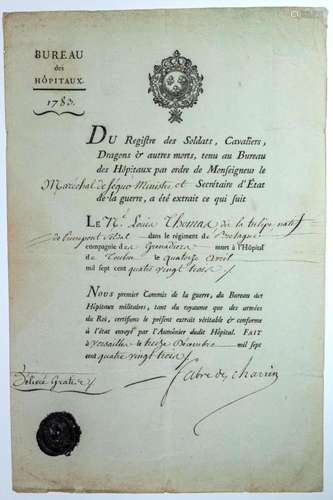 BUREAU
des
HÔPITAUX.
1783.
DU Registre des Soldats, Cavaliers,
Dragons & autres morts, tenu au Bureau
des Hôpitaux par ordre de Monseigneur le
Maréchal de Ségur Ministre et Secrétaire d'Etat
de la guerre, a été extrait ce qui suit
LE N.é Louis Thomas dit la tulipe natif
de soldat dans le régiment de Bretagne
compagnie des Grenadiers mort à l'Hôpital
de Toulon le quatorze avril
mil sept cent quatre vingt trois
NOUS premier Commis de la guerre, du Bureau des
Hôpitaux militaires, tant du royaume que des armées
du Roi, certifions le présent extrait véritable & conforme
à l'état envoyé par l'Aumônier dudit Hôpital. FAIT
à Versailles le treize Décembre mil sept
cent quatre vingt trois
Délivré Gratis
fabre de charrin